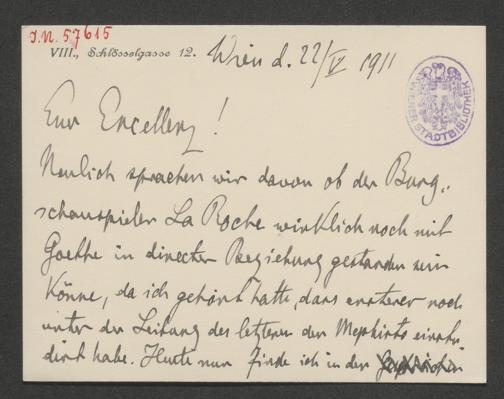 J.N. 57615
VIII., Schlösselgasse 12. Wien d. 22/IV 1911
WIENER STADTBIBLIOTHEK
Euer Excellenz!
Neulich sprachen wir davon ob der Burg-
schauspieler La Roche wirklich noch mit
Goethe in directer Beziehung gestanden sein
könne, da ich gehört hatte, dass ersterer noch
unter der Leitung des letzteren den Mephisto einstu-
dirt habe. Heute nun finde ich in den